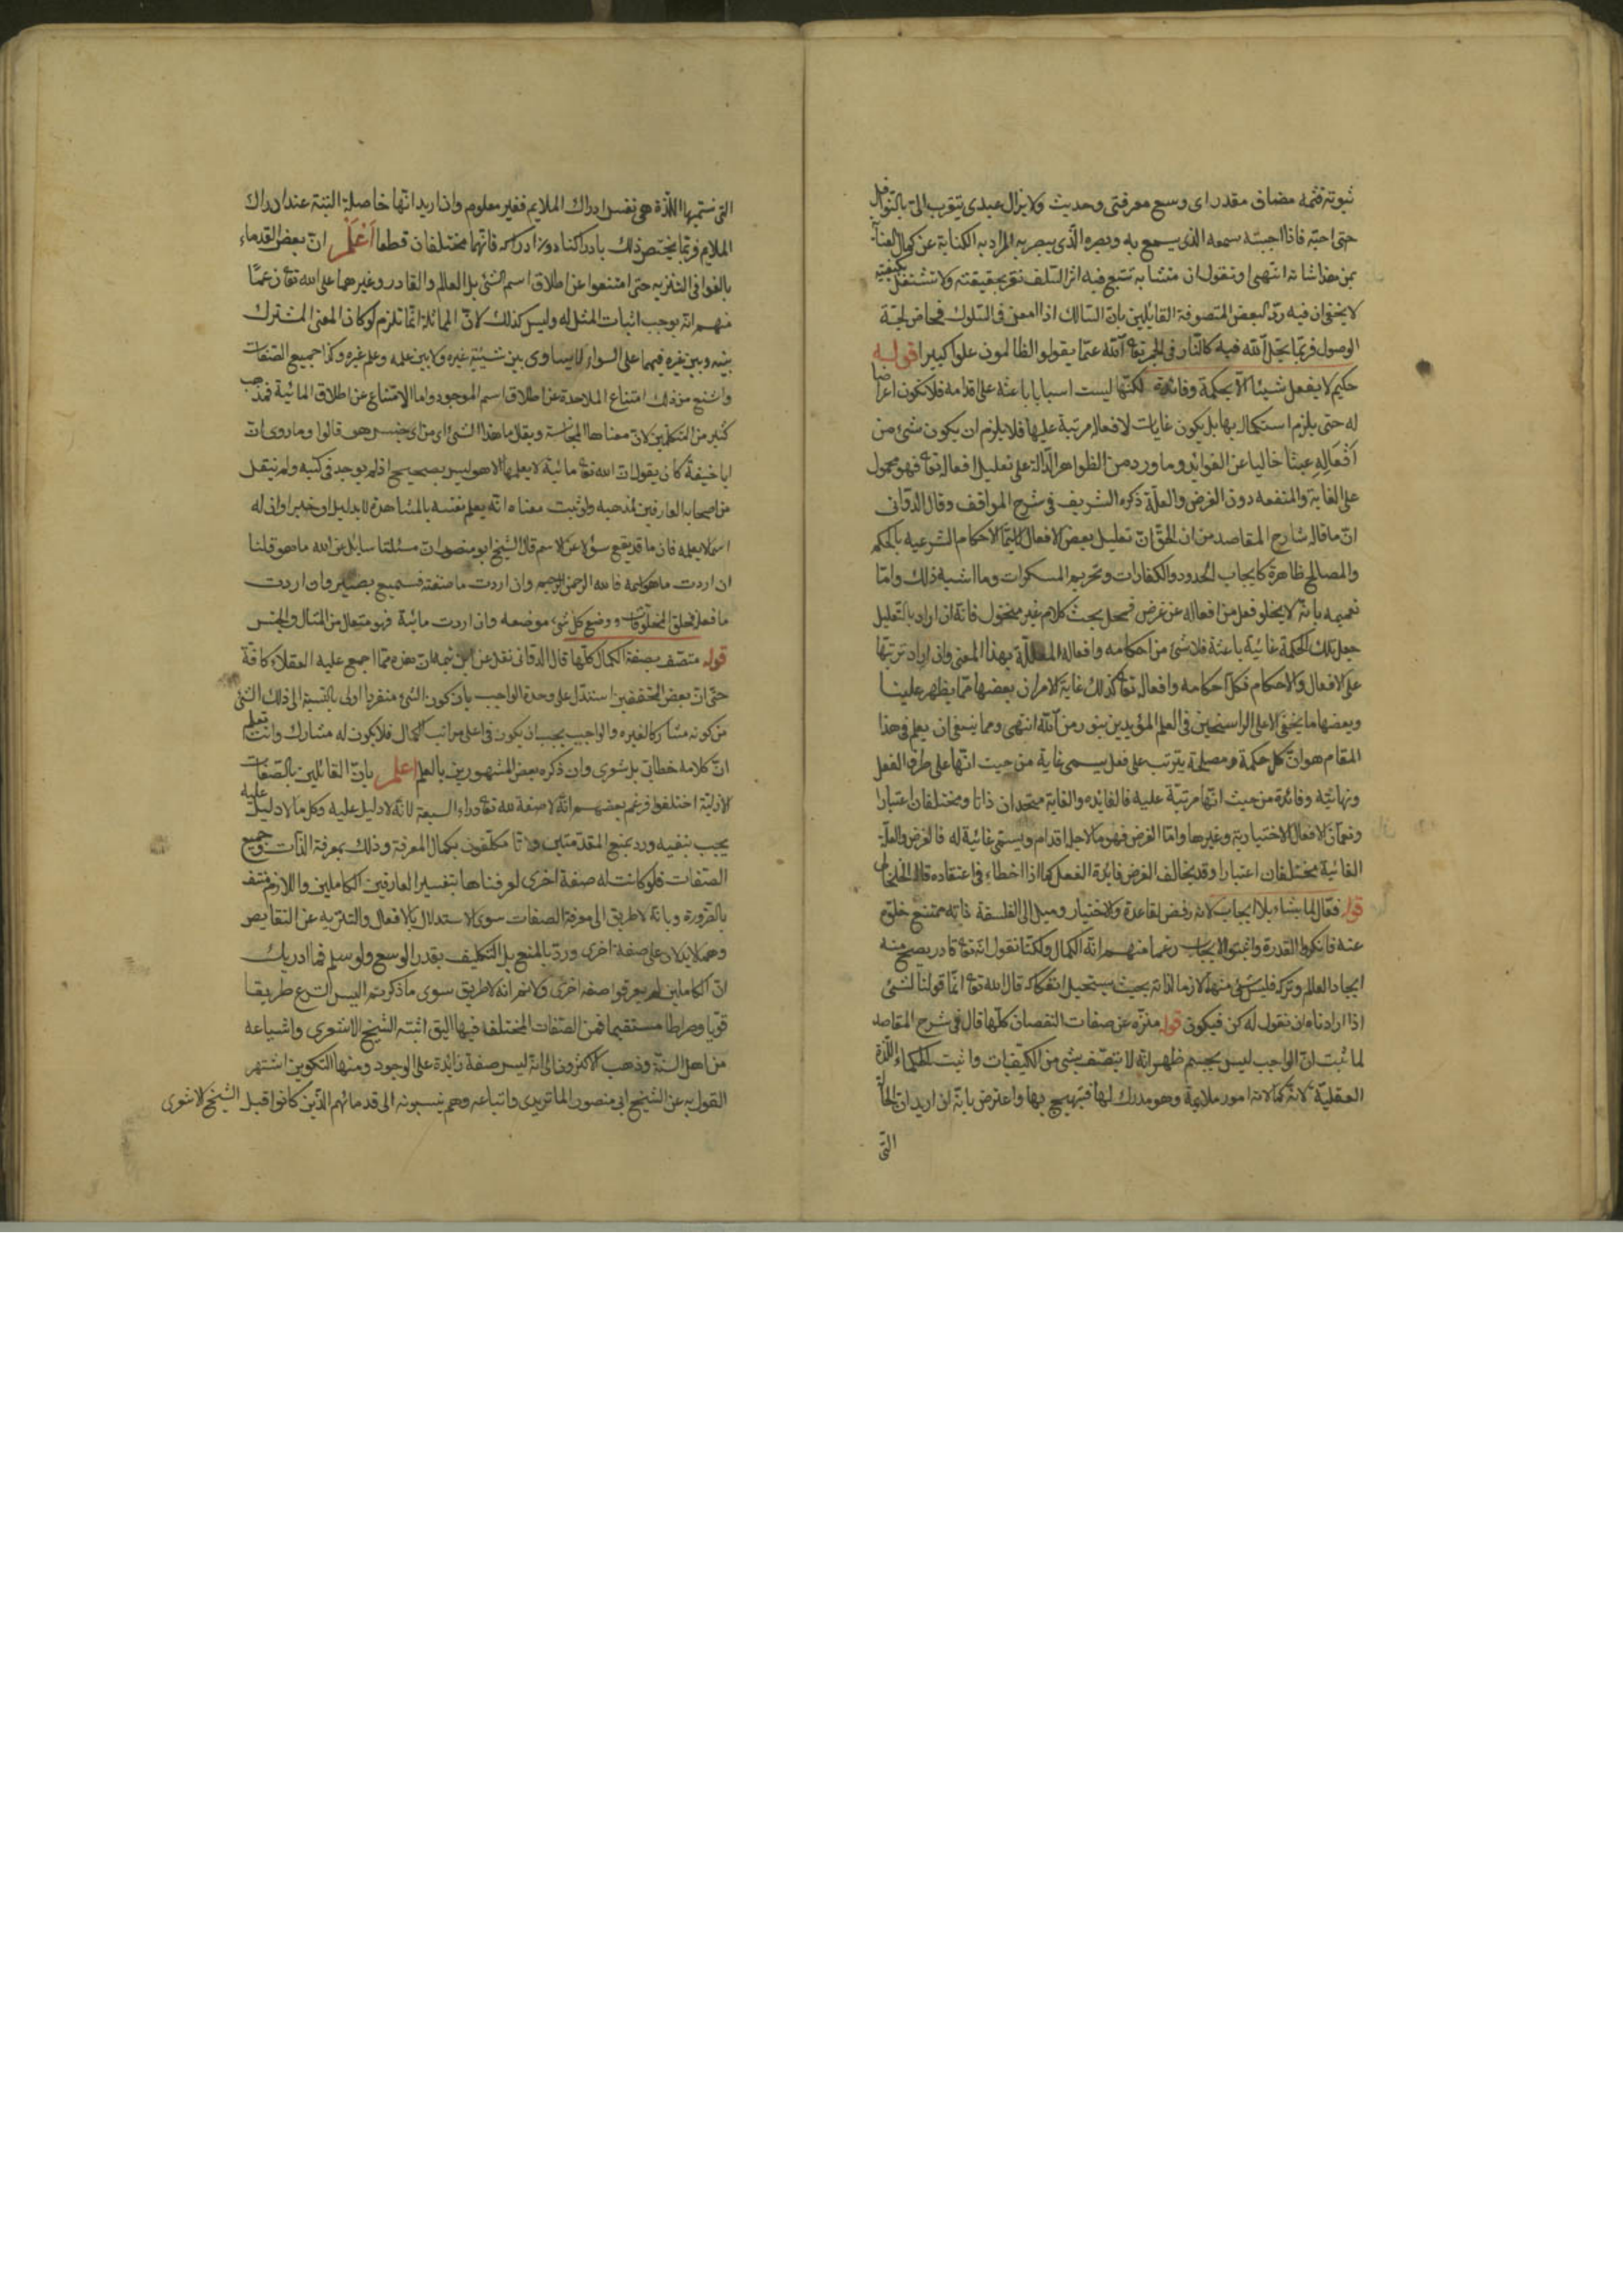 ثبوتية ثمه مضاف مقدر اى وسع معرفتى وحديث ولا يزال عبدى يتقرب الىّ بالنوافل
حتى احبّه فاذا احببته سمعه الذى يسمع به وبصره الّذى يبصر به المراد به الكناية عن كمال العناية
بمن هذا شانه انتهى او نقول ان متشابه نتبع فيه اثر السّلف نقر بحقيقته ولا نشتغل بكيفيته
لا يخفى ان فيه ردّ لبعض المتصوفة القايلين بان السّالك اذا امعن فى السّلوك فخاض لجّة
الوصول فربّما يحلّ الله فيه كالنّار فى الجمر تع الله عمّا يقولوا الظالمون علوا كبيرا قوله
حكيم لا يفعل شيئا الّا بحكمة وفائدة لكنّها ليست اسبابا باعثة على اقدامه فلا تكون اغراضا
له حتى يلزم استكماله بها بل يكون غايات لافعاله مرتبة عليها فلا يلزم ان يكون شئ من
أفعاله عبثا خاليا عن الفوايد وما ورد من الظواهر الدّالة على تعليل افعاله تع فهو محمول
على الغاية والمنفعة دون الغرض والعلّة ذكره الشريف فى شرح المواقف وقال الدّوّانى
انّ ما قاله شارح المقاصد من ان الحقّ انّ تعليل بعض الافعال لا سيّما الاحكام الشرعيه بالحكم
والمصالح ظاهرة كايجاب الحدود والكفارات وتحريم المسكرات وما اشبه ذلك وامّا
تعميمه بانّه لا يخلو فعل من افعاله عن غرض فمحل بحث كلام غير منخول فانه ان اراد بالتعليل
جعل تلك الحكمة غائية باعثة فلا شئ من احكامه وافعاله المعللة بهذا المعنى وان اراد ترتبها
على الافعال والاحكام فكل احكامه وافعاله تع كذلك غاية الامر ان بعضها ممّا يظهر علينا
وبعضها ما يخفى الا على الراسخين فى العلم المؤيدين بنور من الله انتهى ومما ينبغى ان يعلم فى هذا
المقام هو انّ كل حكمة ومصلحة يترتب على فعل يسمى غاية من حيث انّها على طرف الفعل
ونهايته وفائدة من حيث انّها مرتبّة عليه فالفائده والغاية متحدان ذاتا ومختلفان اعتبارا
وتعمّان الافعال الاختيارية وغيرها وامّا الغرض فهو ما لاجل اقدام ويسمّى غائية له فالغرض والعلّة
الغائية مختلفان اعتبارا وقد يخالف الغرض فائدة الفعل كما اذا اخطاء فى اعتقاده قاله الخلخالى
قوله فعّال لما يشاء بلا ايجاب لانه رفض لقاعدة والاختيار وميل الى الفلسفة فانه ممتنع خلوّه
عنه فانكروا القدرة واثبتوا الايجاب زعما منهم انّه الكمال ولكنّا نقول انه تع قادر يصح منه
ايجاد العالم وتركه فليس شئ منها لازما لذاته بحيث يستحيل انفكاكه قال الله تع انّما قولنا لشئ
اذا اردناه ان نقول له كن فيكون قوله منزّه عن صفات النقصان كلّها قال فى شرح المقاصد
لما ثبت انّ الواجب ليس بجسم ظهر انّه لا يتصف بشئ من الكيفيّات واثبت الحكماء اللذّة
العقليّة لانّه كمالاته امور ملايمة وهو مدرك لها فيبتهج بها واعترض بانّه ان اريد ان الحالة
التّى
التى نسمّيها اللذّة هى نفس ادراك الملايم فغير معلوم وان اريد انّها حاصلة البتة عند ادراك
الملايم فربّما يختصّ ذلك بادراكنا دون ادراكه فانّهما مختلفان قطعا اَعْلَمْ انّ بعض القدماء
بالغوا فى التنزيه حتى امتنعوا عن اطلاق اسم الشئ بل العالم والقادر وغيرهما على الله تع زعمًا
منهم انّه يوجب اثبات المثل له وليس كذلك لانّ المماثلة انّما تلزم لو كان المعنى المشترك
بينه وبين غيره فيهما على السواء ولا يساوى بين شيئيّة غيره ولا بين علمه وعلم غيره وكذا جميع الصّفات
واشنع من ذلك امتناع الملاحدة عن اطلاق اسم الموجود واما الامتناع عن اطلاق المائية فمذهب
كثير من المتكلّمين لانّ معناها المجانسة ويقال ما هذا الشئ اى من اىّ جنس هو قالوا وما روى انّ
ابا حنيفة كان يقول انّ الله تع مائية لا يعلمها الا هو ليس بصحيح اذ لم يوجد فى كتبه ولم ينقل
من اصحابه العارفين لمذهبه ولو ثبت معناه انّه يعلم نفسه بالمشاهدة لا بدليل او خبر او ان له
اسما لا يعلمه فان ما قد يقع سؤلا عن الاسم قال الشيخ ابو منصور انّ مسئلتنا سايل عن الله ما هو قلنا
ان اردت ما هو اسمه فالله الرحمن الرحيم وان اردت ما صفته فسميع بصير وان اردت
ما فعله فخلق المخلوقات ووضع كل شئ موضعه وان اردت مائية فهو متعال من المثال والجنس
قوله متصّف بصفة الكمال كلّها قال الدوّانى نقل عن ابن تيمية ان هذه ممّا اجمع عليه العقلاء كافّة
حتّى انّ بعض المحققين استدلّ على وحدة الواجب بان كون الشئ منفردا اولى بالنسبة الى ذلك الشئ
من كونه مشاركا لغيره والواجب يجب ان يكون فى اعلى مراتب الكمال فلا يكون له مشارك وانت تعلم
انّ كلامه خطابىّ بل شعرى وان ذكره بعض المشهورين بالعلم اعلم بان القائلين بالصّفات
الازلية اختلفوا فزعم بعضهم انّه لا صفة لله تع وراء السبعة لانّه لا دليل عليه وكل ما لا دليل عليه
يجب نفيه ورد بمنع المقدّمتين ولانّا مكلّفون بكمال المعرفة وذلك بمعرفة الذّات وجميع
الصّفات فلو كانت له صفة اخرى لعرفناها بتفسير العارفين الكاملين واللازم منتف
بالضّرورة وبانّه لا طريق الى معرفة الصفات سوى الاستدلال بالافعال والتنزيه عن النقايص
وهما لا يدلان على صفة اخرى وردّ بالمنع بل التكليف بقدر الوسع ولو سلم فما ادريك
انّ الكاملين لم يعرفوا صفة اخرى ولا نسلم انه لا طريق سوى ما ذكرتم اليس الشرع طريقا
قويا وصراطا مستقيما فمن الصّفات المختلف فيها البقاء اثبته الشيخ الاشعرى واشياعه
من اهل السنّة وذهب الاكثرون الى انّه ليس صفة زايدة على الوجود ومنها التكوين اشتهر
القول به عن الشيخ ابى منصور الماتريدى واتباعه وهم ينسبونه الى قدمائهم الذّين كانوا قبل الشيخ الاشعرى